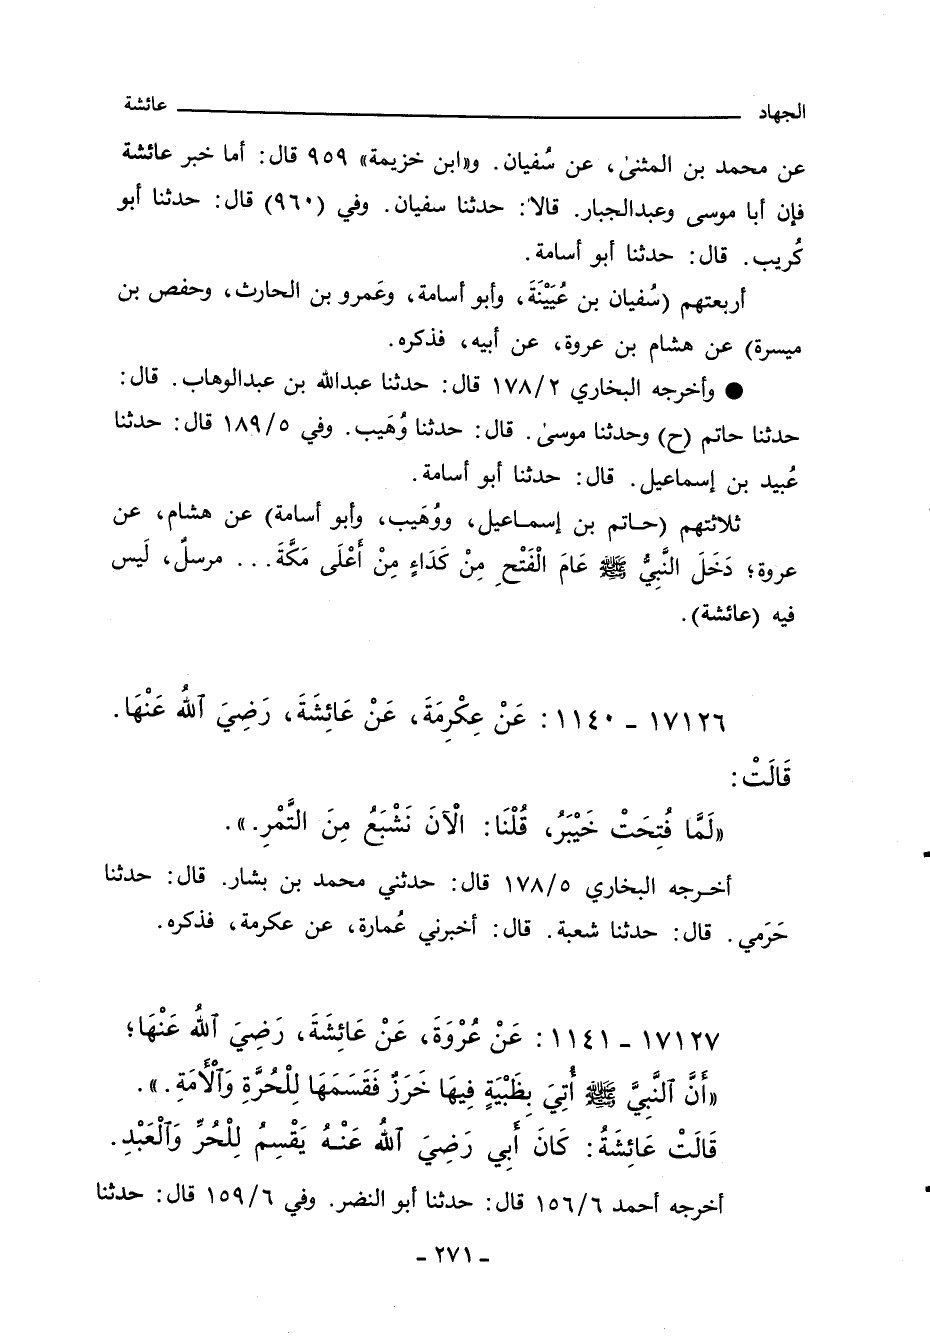 الجهاد عائشة
عن محمد بن المثنىٰ، عن سُفيان. و«ابن خزيمة» ٩٥٩ قال: أما خبر عائشة
فإن أبا موسى وعبدالجبار. قالا: حدثنا سفيان. وفي (٩٦٠) قال: حدثنا أبو
كُريب. قال: حدثنا أبو أسامة.
أربعتهم (سُفيان بن عُيَيْنَةَ، وأبو أسامة، وعَمرو بن الحارث، وحفص بن
ميسرة) عن هشام بن عروة، عن أبيه، فذكره.
● وأخرجه البخاري ١٧٨/٢ قال: حدثنا عبدالله بن عبدالوهاب. قال:
حدثنا حاتم (ح) وحدثنا موسىٰ. قال: حدثنا وُهَيب. وفي ١٨٩/٥ قال: حدثنا
عُبيد بن إسماعيل. قال: حدثنا أبو أسامة.
ثلاثتهم (حاتم بن إسماعيل، ووُهَيب، وأبو أسامة) عن هشام، عن
عروة؛ دَخَلَ النَّبِيُّ ﷺ عَامَ الْفَتْحِ مِنْ كَدَاءٍ مِنْ أَعْلَى مَكَّةَ... مرسلٌ، لَيس
فيه (عائشة).
١٧١٢٦ - ١١٤٠: عَنْ عِكْرِمَةَ، عَنْ عَائِشَةَ، رَضِيَ ٱللهُ عَنْهَا.
قَالَتْ:
«لَمَّا فُتِحَتْ خَيْبَرُ، قُلْنَا: الْآنَ نَشْبَعُ مِنَ التَّمْرِ.».
أخرجه البخاري ١٧٨/٥ قال: حدثني محمد بن بشار. قال: حدثنا
حَرَمي. قال: حدثنا شعبة. قال: أخبرني عُمارة، عن عكرمة، فذكره.
١٧١٢٧ - ١١٤١: عَنْ عُرْوَةَ، عَنْ عَائِشَةَ، رَضِيَ ٱللهُ عَنْهَا؛
«أَنَّ ٱلنَّبِيَّ ﷺ أُتِيَ بِظَبْيَةٍ فِيهَا خَرَزٌ فَقَسَمَهَا لِلْحُرَّةِ وَٱلْأَمَةِ.».
قَالَتْ عَائِشَةُ: كَانَ أَبِي رَضِيَ ٱللهُ عَنْهُ يَقْسِمُ لِلْحُرِّ وَٱلْعَبْدِ.
أخرجه أحمد ١٥٦/٦ قال: حدثنا أبو النضر. وفي ١٥٩/٦ قال: حدثنا
- ٢٧١ -